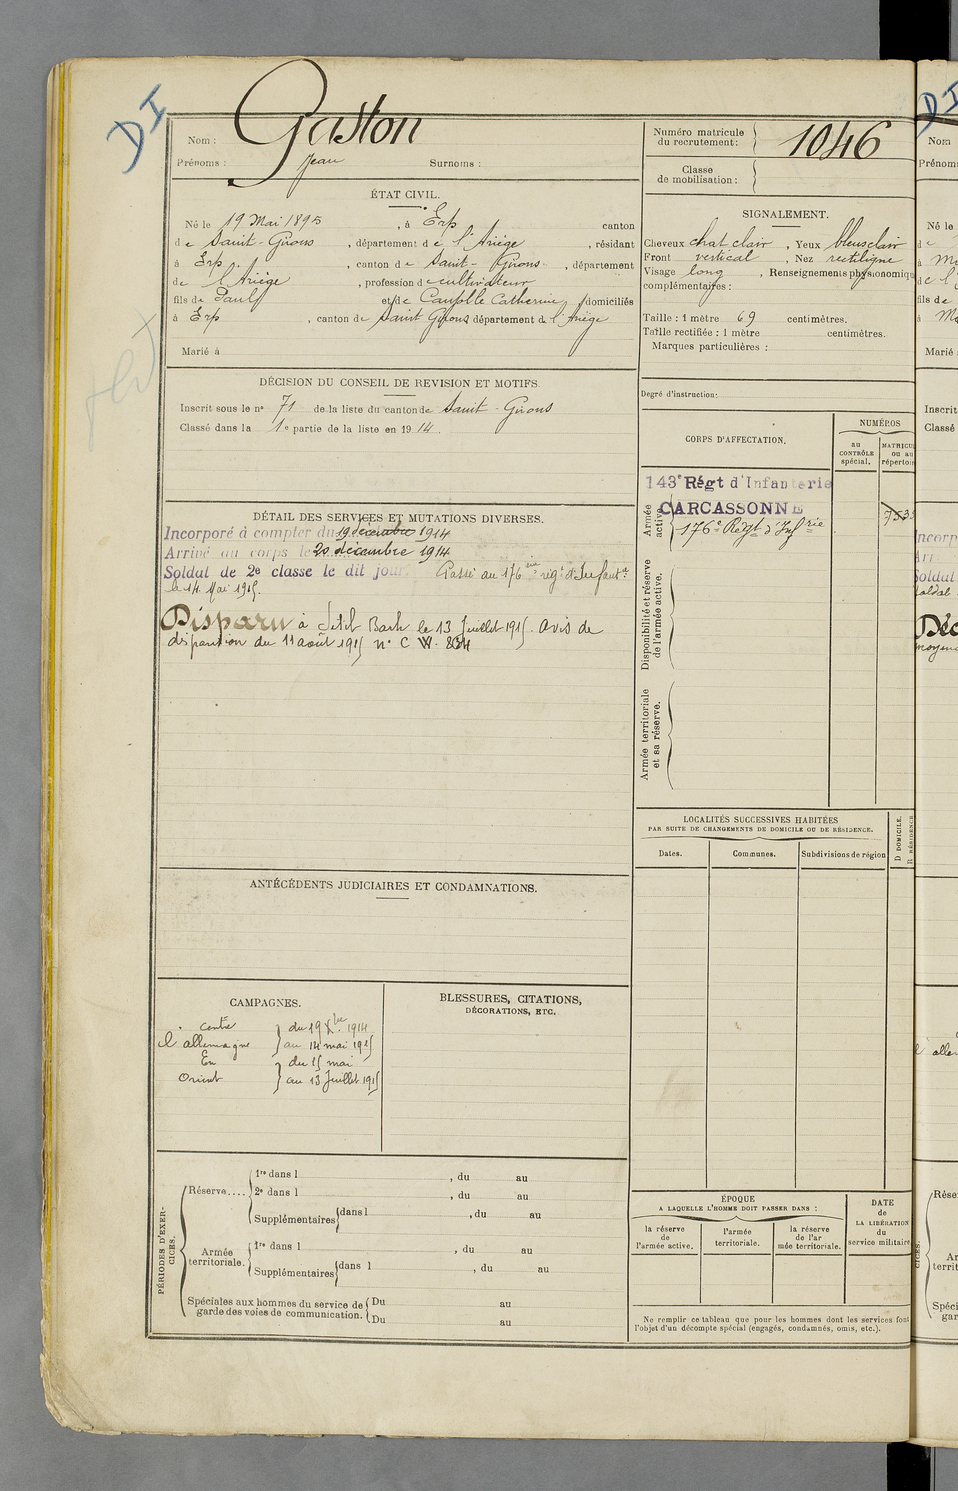 DI
Nom : Gaston
Prénoms : Jean Surnoms :
Numéro matricule du recrutement : 1046
Classe de mobilisation :
ÉTAT CIVIL.
Né le 19 Mai 1895, à Erp canton
de Saint-Girons, département de l'Ariège, résidant
à Erp, canton de Saint-Girons, département
de l'Ariège, profession de cultivateur
fils de et de Catherine, domiciliés
à Erp, canton de Saint Girons département de l'Ariège
Marié à
SIGNALEMENT.
Cheveux chat clair, Yeux bleus clair
Front vertical, Nez rectiligne
Visage long, Renseignements physionomiq
complémentaires :
Taille : 1 mètre 69 centimètres.
Taille rectifiée : 1 mètre centimètres.
Marques particulières :
DÉCISION DU CONSEIL DE REVISION ET MOTIFS.
Inscrit sous le n° 71 de la liste du canton de Saint-Girons
Classé dans la 1e partie de la liste en 1914.
Degré d'instruction:
CORPS D'AFFECTATION.
NUMÉROS
au CONTRÔLE spécial.
MATRICU ou au répertoir
143e Régt d'Infanterie
CARCASSONNE
176e Régt d'Infrie
Armée active.
Disponibilité et réserve de l'armée active.
Armée territoriale et sa réserve.
DÉTAIL DES SERVICES ET MUTATIONS DIVERSES.
Incorporé à compter du 19 décembre 1914
Arrivé au corps le 20 décembre 1914
Soldat de 2e classe le dit jour. Passé au 176ème rég. d'Infantie
le 14 Mai 1915.
Disparu à Setil Barh le 13 Juillet 1915. Avis de
disparition du 11 août 1915 n° C W. 834
LOCALITÉS SUCCESSIVES HABITÉES
PAR SUITE DE CHANGEMENTS DE DOMICILE OU DE RÉSIDENCE.
Dates. Communes. Subdivisions de région
D DOMICILE.
R RÉSIDENCE
ANTÉCÉDENTS JUDICIAIRES ET CONDAMNATIONS.
CAMPAGNES.
centre } du 19 Xbre 1914
l'allemagne } au 14 mai 1915
En } du 15 mai
Orient } au 13 Juillet 1915
BLESSURES, CITATIONS,
DÉCORATIONS, ETC.
PÉRIODES D'EXERCICES.
Réserve....
1re dans l , du au
2e dans l , du au
Supplémentaires dans l , du au
Armée territoriale.
1re dans l , du au
Supplémentaires dans l , du au
Spéciales aux hommes du service de garde des voies de communication.
Du au
Du au
ÉPOQUE
A LAQUELLE L'HOMME DOIT PASSER DANS :
la réserve de l'armée active.
l'armée territoriale.
la réserve de l'ar mée territoriale.
DATE de LA LIBÉRATION du service militaire
Ne remplir ce tableau que pour les hommes dont les services font
l'objet d'un décompte spécial (engagés, condamnés, omis, etc.).
DI
Nom
Prénom
Né le
de
à
de l'
fils de
à
Marié
Inscrit
Classé
Incorp
Arr
Soldat
Déc
moyen
alle
Rése
Ar
territ
Spéci
gar